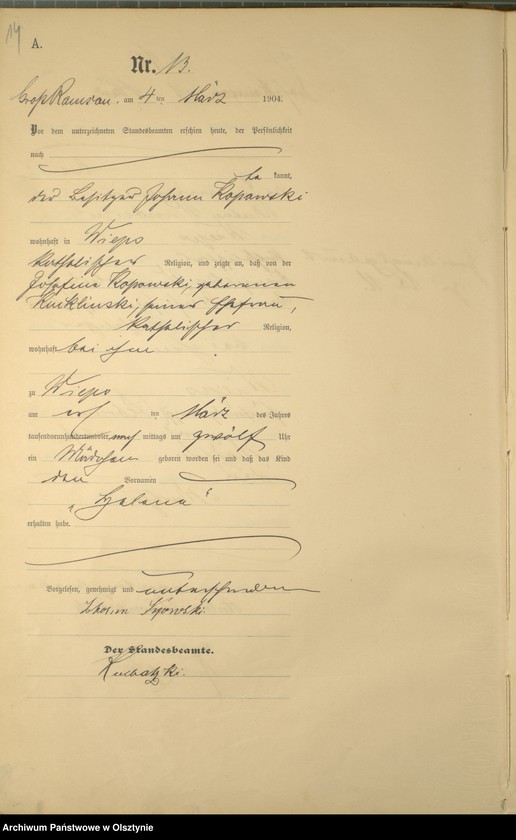 14
A.
Nr. 13.
Groß Ramsau, am 4 ten März 1904.
Vor dem unterzeichneten Standesbeamten erschien heute, der Persönlichkeit
nach
be kannt,
der Besitzer Johann Kopowski
wohnhaft in Wieps
katholischer Religion, und zeigte an, daß von der
Josefine Kopowski, geborenen
Kuklinski, seiner Ehefrau,
katholischer Religion,
wohnhaft bei ihm
zu Wieps
am ten März des Jahres
tausendneunhundertundvier, nach mittags um zwölf Uhr
ein Mädchen geboren worden sei und daß das Kind
den Vornamen
„Helena“
erhalten habe.
Vorgelesen, genehmigt und unterschrieben
Der Standesbeamte.
Archiwum Państwowe w Olsztynie